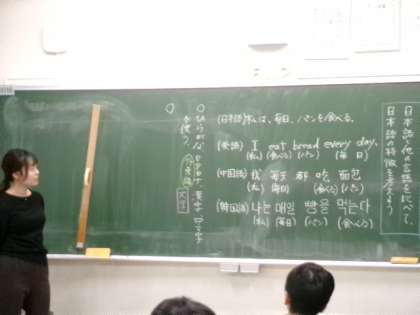 日本語と他の言語を比べて、
日本語の特徴を考えよう
(日本語) 私は、毎日、パンを食べる。
(英語) I eat bread every day.
(私) (食べる) (パン) (毎 日)
(中国語) 我 每天 都 吃 面包
(私) (毎日) (食べる) (パン)
(韓国語) 나는 매일 빵을 먹는다
(私) (毎日) (パン) (食べる)
〇ひらがな、カタカナ、漢字、ローマ字
を使う。
文字
〇